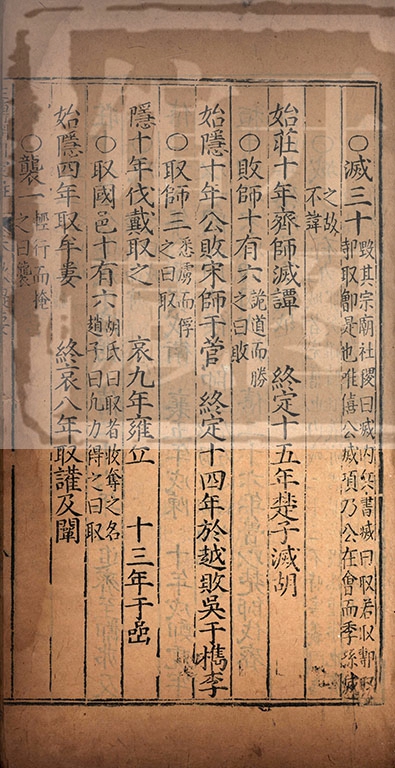 ○滅三十毀其宗廟社稷曰滅內不書滅曰取若取邿取鄟是也唯僖公滅項乃公在會而季孫滅
之故不諱
始莊十年齊師滅譚　終定十五年楚子滅胡
○敗師十有六詭道而勝之曰敗
始隱十年公敗宋師于菅　終定十四年於越敗吳于檇李
○取師三悉虜而俘之曰取
隱十年伐戴取之　哀九年雍丘　十三年于嵒
○取國邑十有六胡氏曰取者收奪之名趙子曰凡力得之曰取
始隱四年取牟婁　終哀八年取讙及闡
○襲一輕行而掩之曰襲